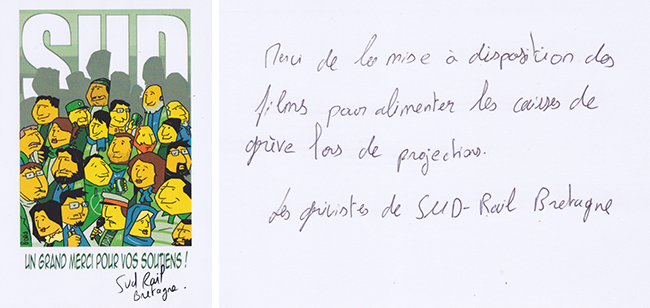 SUD
UN GRAND MERCI POUR VOS SOUTIENS !
Sud Rail
Bretagne.
Merci de la mise à disposition des
films pour alimenter les caisses de
grève lors de projections.
Les grévistes de SUD-Rail Bretagne